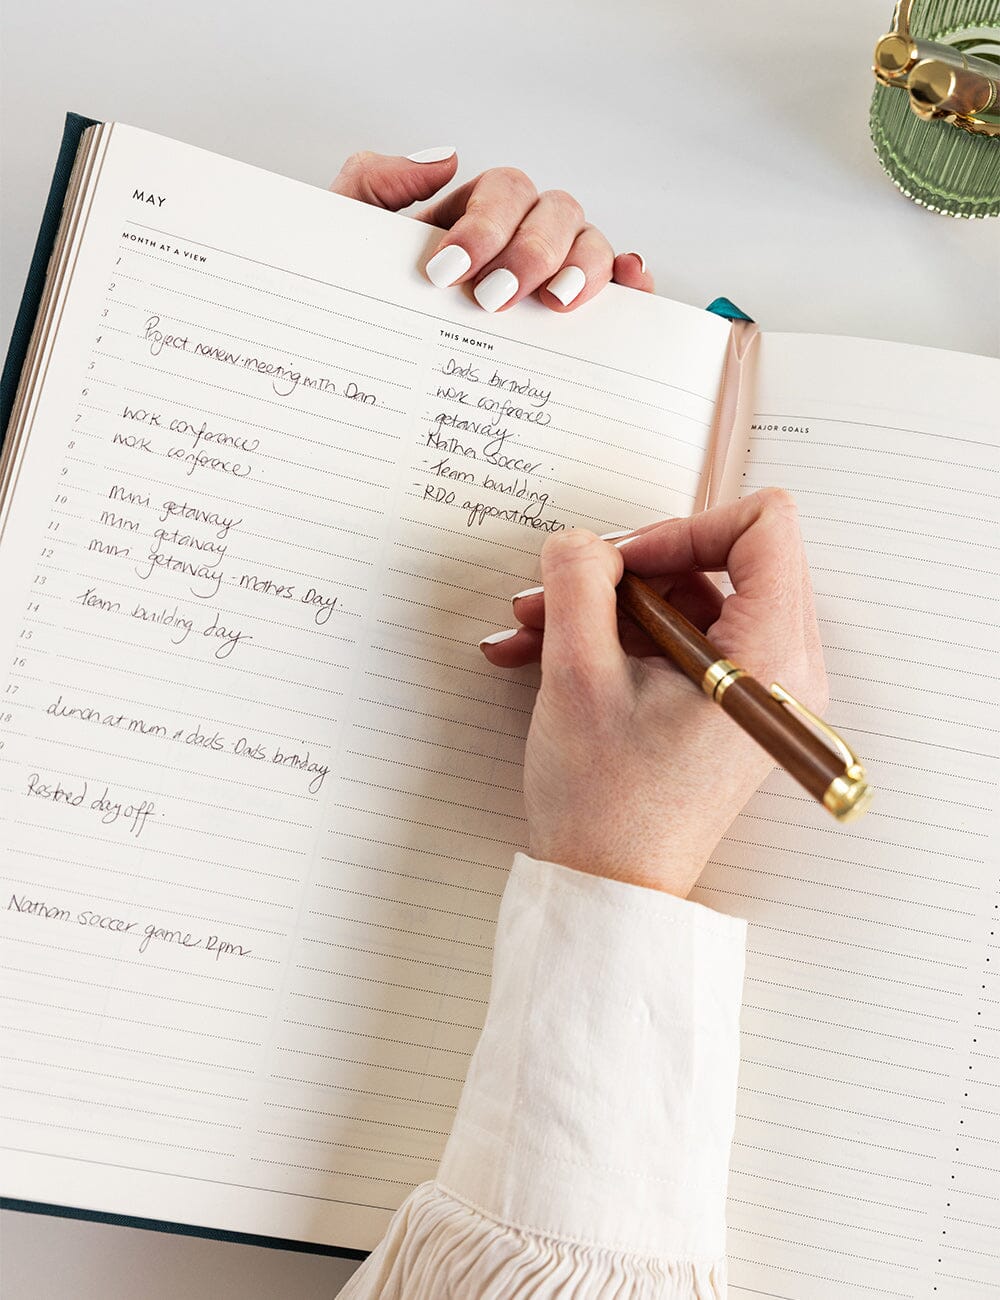 MAY
MONTH AT A VIEW
1
2
3
Project review meeting with Dan.
4
5
6
work conference
7
work conference.
8
9
mini getaway
10
mini getaway
11
mini getaway - mothers Day.
12
13
team building day
14
15
16
17
Lunch at mum & dads - Dads birthday
18
9
Rostered day off.
Nathan soccer game 12pm
THIS MONTH
Dads birthday
work conference
getaway.
Nathan Soccer.
- team building.
- RDO appointments.
MAJOR GOALS